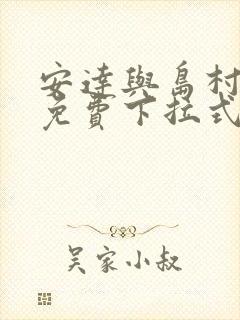 安達與島村
免費下拉式
吴家小叔